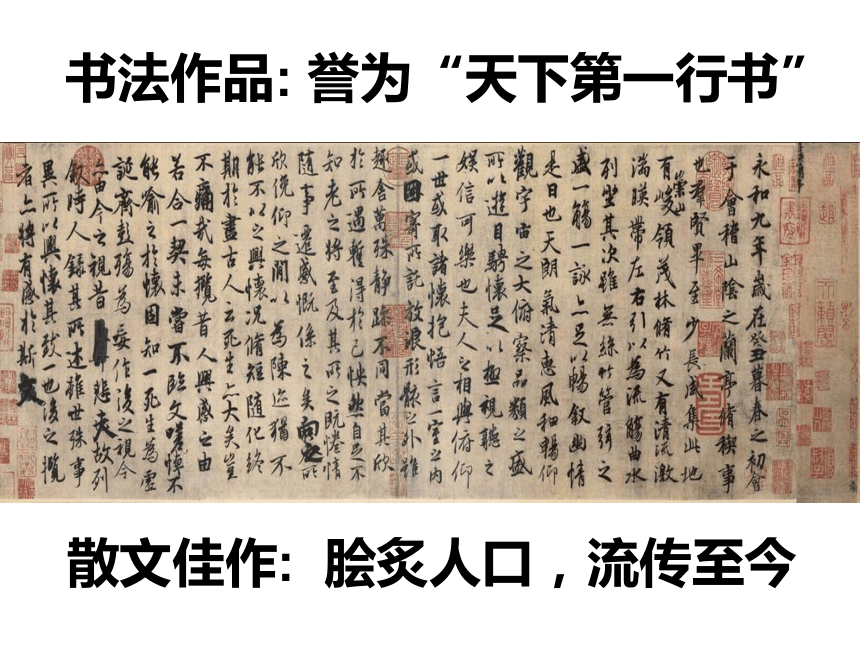 书法作品: 誉为“天下第一行书”
永和九年歲在癸丑暮春之初會
于會稽山陰之蘭亭脩稧事
也羣賢畢至少長咸集此地
有崇山峻領茂林脩竹又有清流激
湍暎帶左右引以為流觴曲水
列坐其次雖無絲竹管弦之
盛一觴一詠亦足以暢叙幽情
是日也天朗氣清惠風和暢仰
觀宇宙之大俯察品類之盛
所以遊目騁懷足以極視聽之
娛信可樂也夫人之相與俯仰
一世或取諸懷抱悟言一室之內
或因寄所託放浪形骸之外雖
趣舍萬殊靜躁不同當其欣
於所遇暫得於己怏然自足不
知老之將至及其所之既惓情
隨事遷感慨係之矣向之所
欣俛仰之閒以為陳迹猶不
能不以之興懷況脩短隨化終
期於盡古人云死生亦大矣豈
不痛哉每攬昔人興感之由
若合一契未嘗不臨文嗟悼不
能喻之於懷固知一死生為虛
誕齊彭殤為妄作後之視今
亦由今之視昔悲夫故列
叙時人錄其所述雖世殊事
異所以興懷其致一也後之攬
者亦將有感於斯文
散文佳作: 脍炙人口，流传至今